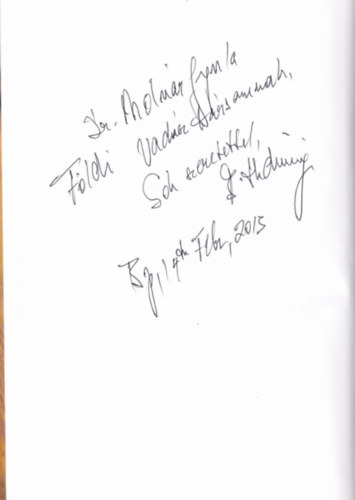 Dr. Molnár Gyula
Földi Vadász társamnak,
Sok szeretettel,
Bp, 14th Febr, 2015